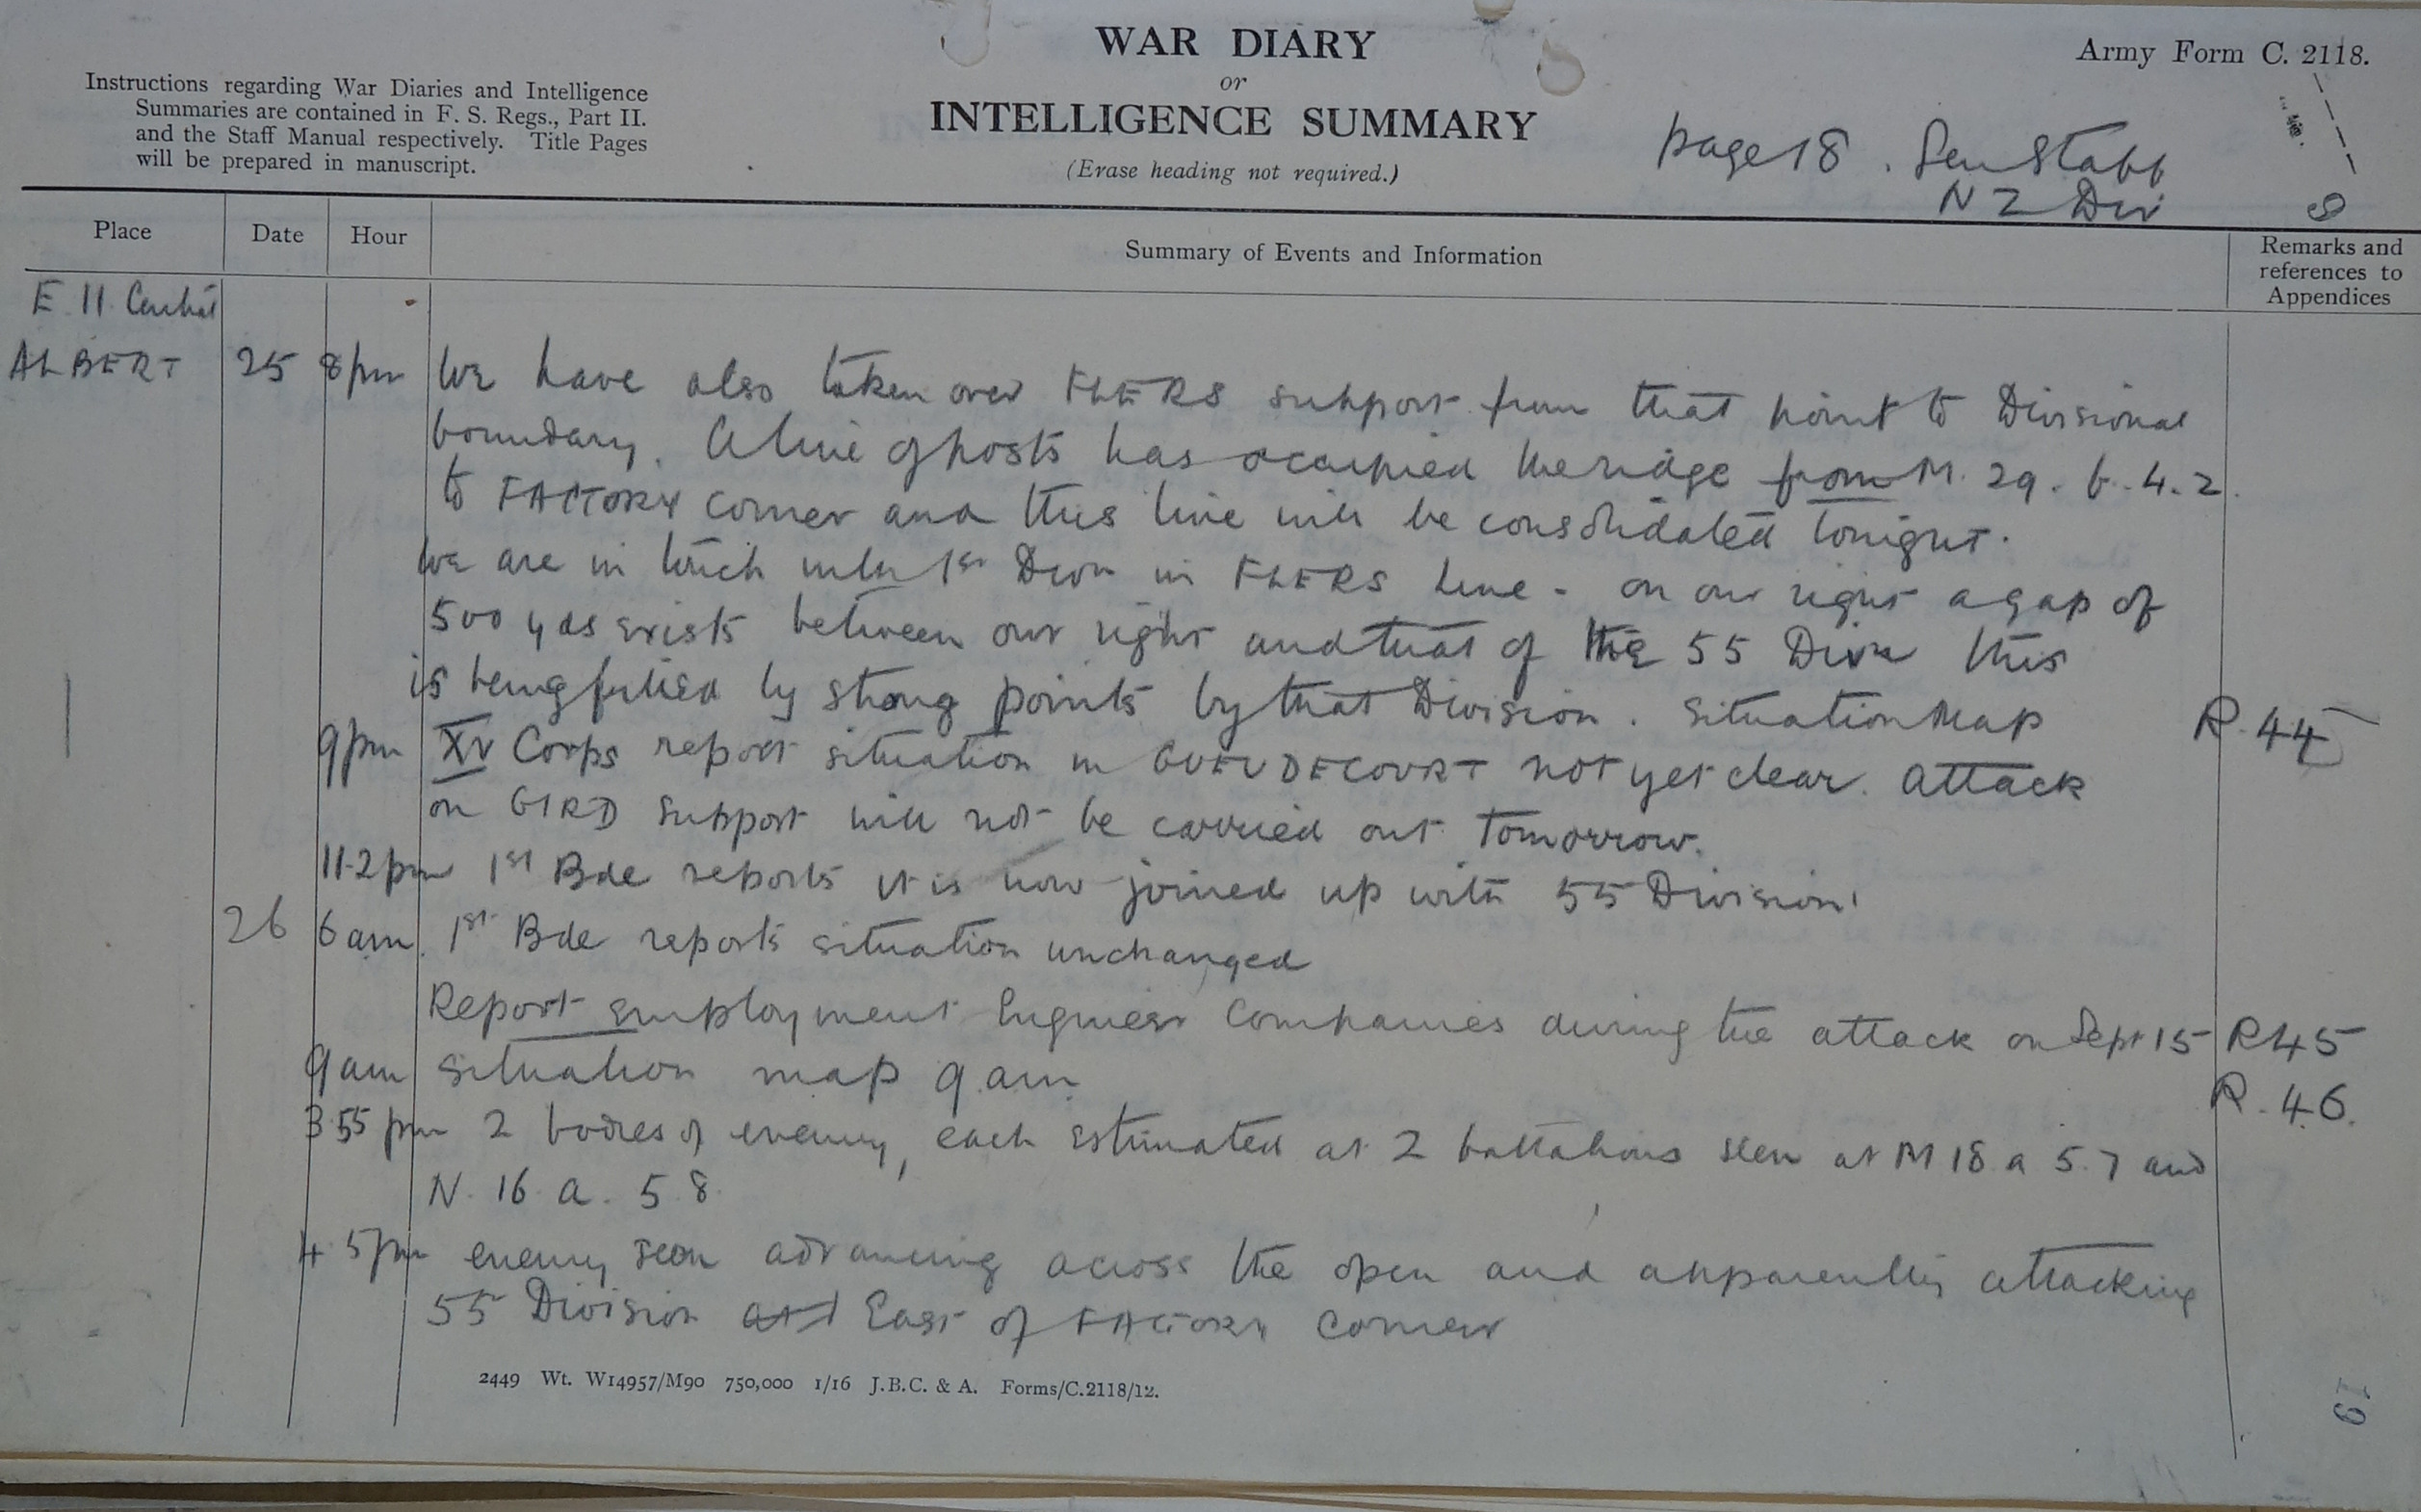 WAR DIARY
or
INTELLIGENCE SUMMARY
(Erase heading not required.)
Army Form C. 2118.
Instructions regarding War Diaries and Intelligence
Summaries are contained in F. S. Regs., Part II.
and the Staff Manual respectively. Title Pages
will be prepared in manuscript.
page 18. Gen Staff
N Z Div
Place Date Hour Summary of Events and Information Remarks and references to Appendices
E 11 Central
ALBERT 25 8pm We have also taken over FLERS support from that point to Divisional
boundary. A line of posts has occupied the ridge from M. 29. b. 4. 2.
to FACTORY corner and this line will be consolidated tonight.
We are in touch with 1st Divn in FLERS line - on our right a gap of
500 yds exists between our right and that of the 55 Divn this
is being filled by strong points by that Division. Situation Map R. 44
9pm XV Corps report situation in GUEUDECOURT not yet clear. Attack
on GIRD Support will not be carried out tomorrow.
11.2pm 1st Bde reports it is now joined up with 55 Division.
26 6 am. 1st Bde reports situation unchanged
Report employment Engineer Companies during the attack on Sept 15 R45
9am Situation map 9 am R. 46.
3.55 pm 2 bodies of enemy, each estimated at 2 battalions seen at M 18 a 5.7 and
N. 16 a. 5 8
4.5pm enemy seen advancing across the open and apparently attacking
55 Division East of FACTORY corner
2449 Wt. W14957/M90 750,000 1/16 J.B.C. & A. Forms/C.2118/12.
19